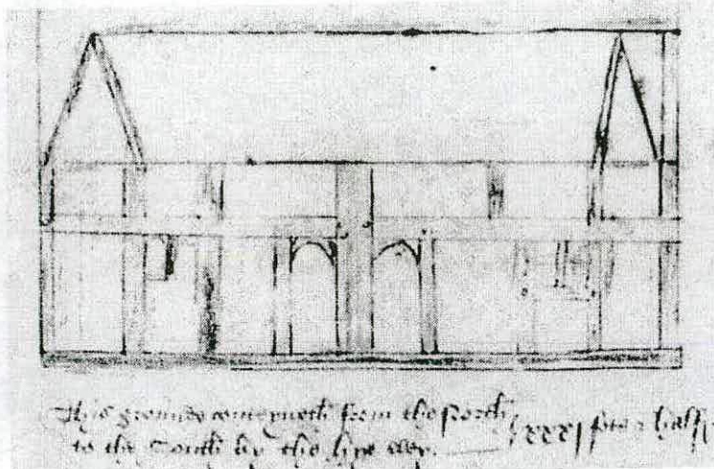 This grounde conteyneth from the North
to the South by the hye wey lxxxj fote & half